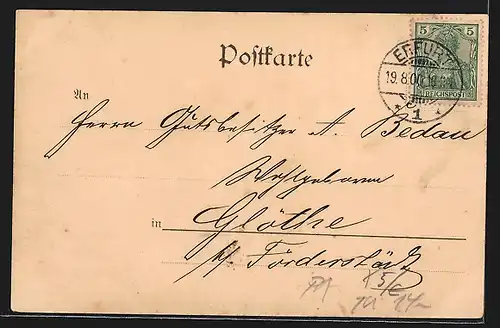 Postkarte
5 5
REICHSPOST
ERFURT
19.8.00
1
An
Herrn Gutsbesitzer A. Bedau
Wohlgeboren
in Glöthe
b/ Förderstädt